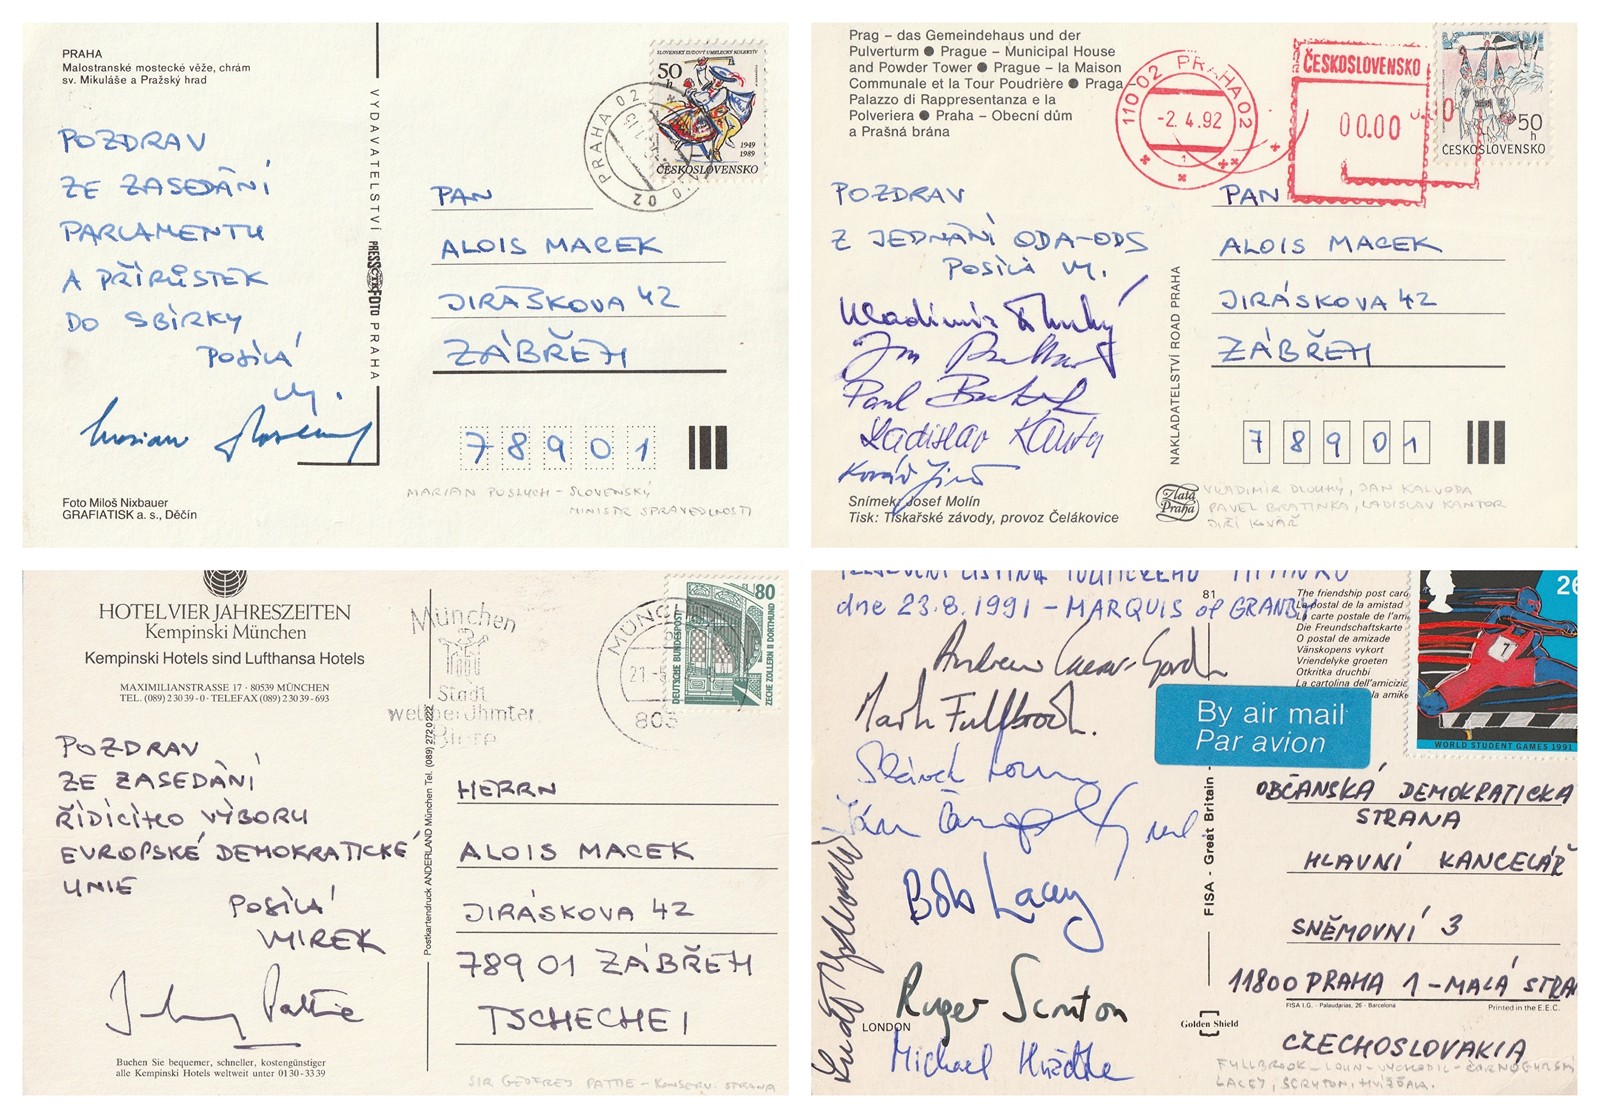 PRAHA
Malostranské mostecké věže, chrám
sv. Mikuláše a Pražský hrad
POZDRAV
ZE ZASEDÁNÍ
PARLAMENTU
A PŘÍRŮSTEK
DO SBÍRKY
POSÍLÁ
Foto Miloš Nixbauer
GRAFIATISK a. s., Děčín
VYDAVATELSTVÍ PRESSFOTO PRAHA
SLOVENSKÝ ĽUDOVÝ UMELECKÝ KOLEKTÍV
50
h
1949
1989
ČESKOSLOVENSKO
PRAHA 02
PAN
ALOIS MACEK
JIRÁSKOVA 42
ZÁBŘEH
78901
MARIAN POSLUCH - SLOVENSKÝ
MINISTR SPRAVEDLNOSTI
Prag – das Gemeindehaus und der
Pulverturm ● Prague – Municipal House
and Powder Tower ● Prague – la Maison
Communale et la Tour Poudrière ● Praga –
Palazzo di Rappresentanza e la
Polveriera ● Praha – Obecní dům
a Prašná brána
POZDRAV
Z JEDNÁNÍ ODA-ODS
POSÍLÁ
Vladimír Dlouhý
Ladislav Kantor
Kovář Jiří
Snímek Josef Molín
Tisk: Tiskařské závody, provoz Čelákovice
NAKLADATELSTVÍ ROAD PRAHA
Zlatá
Praha
110 02 PRAHA 02
-2.4.92
1
ČESKOSLOVENSKO
00.00
50
h
ČESKOSLOVENSKO
PAN
ALOIS MACEK
JIRÁSKOVA 42
ZÁBŘEH
78901
VLADIMÍR DLOUHÝ, JAN KALVODA
PAVEL BRATINKA, LADISLAV KANTOR
JIŘÍ KOVÁŘ
HOTEL VIER JAHRESZEITEN
Kempinski München
Kempinski Hotels sind Lufthansa Hotels
MAXIMILIANSTRASSE 17 · 80539 MÜNCHEN
TEL. (089) 230 39-0 · TELEFAX (089) 230 39-693
POZDRAV
ZE ZASEDÁNÍ
ŘÍDÍCÍHO VÝBORU
EVROPSKÉ DEMOKRATICKÉ
UNIE
POSÍLÁ
MIREK
Buchen Sie bequemer, schneller, kostengünstiger
alle Kempinski Hotels weltweit unter 01 30-33 39
Postkartendruck ANDERLAND München Tel. (089) 272 0 222
München
Stadt
weltberühmter
Biere
MÜNCHEN
21.-5
80
DEUTSCHE BUNDESPOST
ZECHE ZOLLERN II DORTMUND
HERRN
ALOIS MACEK
JIRÁSKOVA 42
789 01 ZÁBŘEH
TSCHECHEI
SIR GEOFREY PATTIE - KONSERV. STRANA
dne 23.8.1991 - MARQUIS of GRANBY
Mark Fullbrook.
Bob Lacey
Roger Scruton
LONDON
81
The friendship post card
La postal de la amistad
La carte postale de l'ami
Die Freundschaftskarte
O postal de amizade
Vänskapens vykort
Vriendelyke groeten
Otkritka druchbi
La cartolina dell'amicizia
By air mail
Par avion
26
7
WORLD STUDENT GAMES 1991
FISA - Great Britain -
OBČANSKÁ DEMOKRATICKÁ
STRANA
HLAVNÍ KANCELÁŘ
SNĚMOVNÍ 3
11800 PRAHA 1 - MALÁ STRA
FISA I.G. - Palaudarias, 26 - Barcelona
Printed in the E.E.C.
Golden Shield
CZECHOSLOVAKIA
FULLBROOK - LOUN - VYCHODIL - ČARNOGURSKÝ
LACEY, SCRUTON, HVÍŽĎALA.